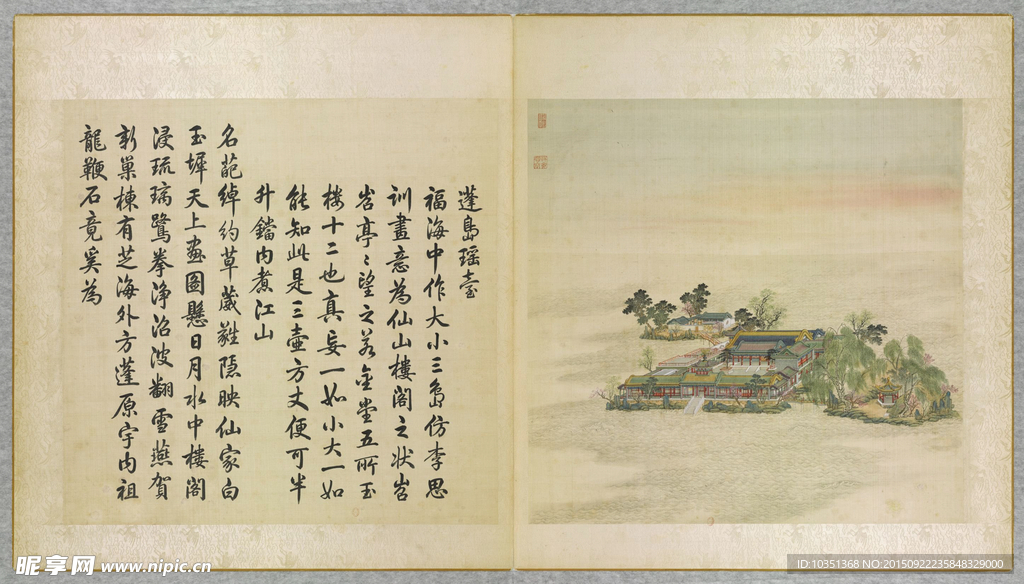 蓬島瑤臺
福海中作大小三島仿李思
訓畫意為仙山樓閣之狀岧
岧亭亭望之若金堂五所玉
樓十二也真妄一如小大一如
能知此是三壺方丈便可半
升鐺內煮江山
名葩綽約草葳蕤隱映仙家白
玉墀天上畫圖懸日月水中樓閣
浸琉璃鷺拳淨沼波翻雪燕賀
新巢棟有芝海外方蓬原宇內祖
龍鞭石竟奚為
昵享网 www.nipic.cn
ID:10351368 NO:20150922235848329000